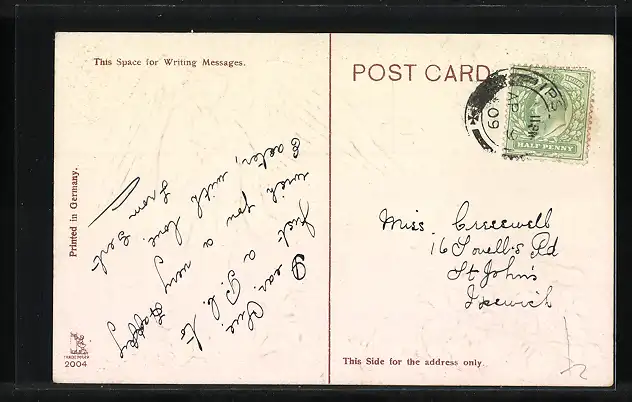 This Space for Writing Messages.
POST CARD.
Printed in Germany.
Dear Olive,
Just a P.C. to
wish you a very Happy
Easter, with love
from Gert
Miss. Cresswell
16 Lovell's Rd
St John's
Ipswich
IPS
11 PM
AP 9
09
HALF PENNY
This Side for the address only.
TRADE MARK
2004